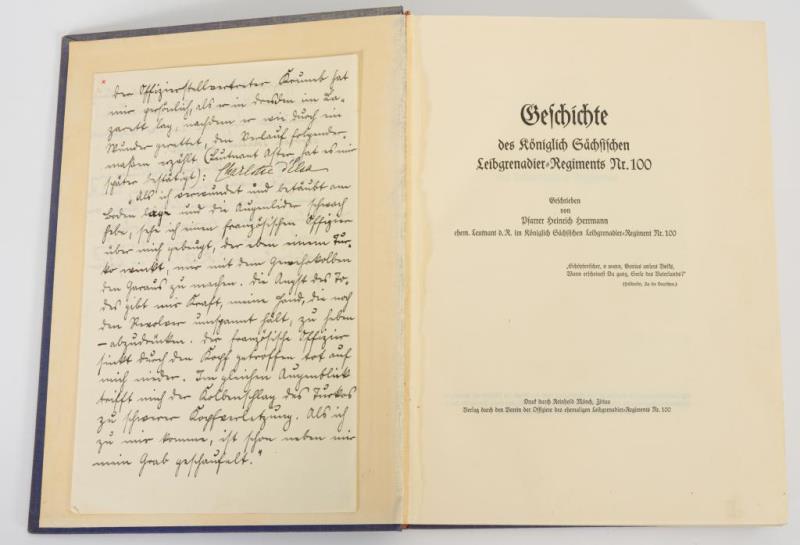 Der Offizierstellvertreter Krumb hat
mir persönlich, als er in Dresden im La-
zarett lag, nachdem er wie durch ein
Wunder gerettet, den Verlauf folgender-
maßen erzählt (Leutnant Aster hat es mir
später bestätigt): Charlotte
"Als ich verwundet und betäubt am
Boden lage und die Augenlider schwach
hebe, sehe ich einen französischen Offizier
über mich gebeugt, der eben einem Tur-
ko winkt, mir mit dem Gewehrkolben
den Garaus zu machen. Die Angst des To-
des gibt mir Kraft, meine Hand, die noch
den Revolver umspannt hält, zu heben
– abzudrücken. Der französische Offizier
sinkt durch den Kopf getroffen tot auf
mich nieder. Im gleichen Augenblick
trifft mich der Kolbenschlag des Turkos
zu schwerer Kopfverletzung. Als ich
zu mir komme, ist schon neben mir
mein Grab geschaufelt."
Geschichte
des Königlich Sächsischen
Leibgrenadier-Regiments Nr. 100
Geschrieben
von
Pfarrer Heinrich Herrmann
ehem. Leutnant d. R. im Königlich Sächsischen Leibgrenadier-Regiment Nr. 100
„Schöpferischer, o wann, Genius unsers Volks,
Wann erscheinst Du ganz, Seele des Vaterlands?"
(Hölderlin, An die Deutschen.)
Druck durch Reinhold Münch, Zittau
Verlag durch den Verein der Offiziere des ehemaligen Leibgrenadier-Regiments Nr. 100